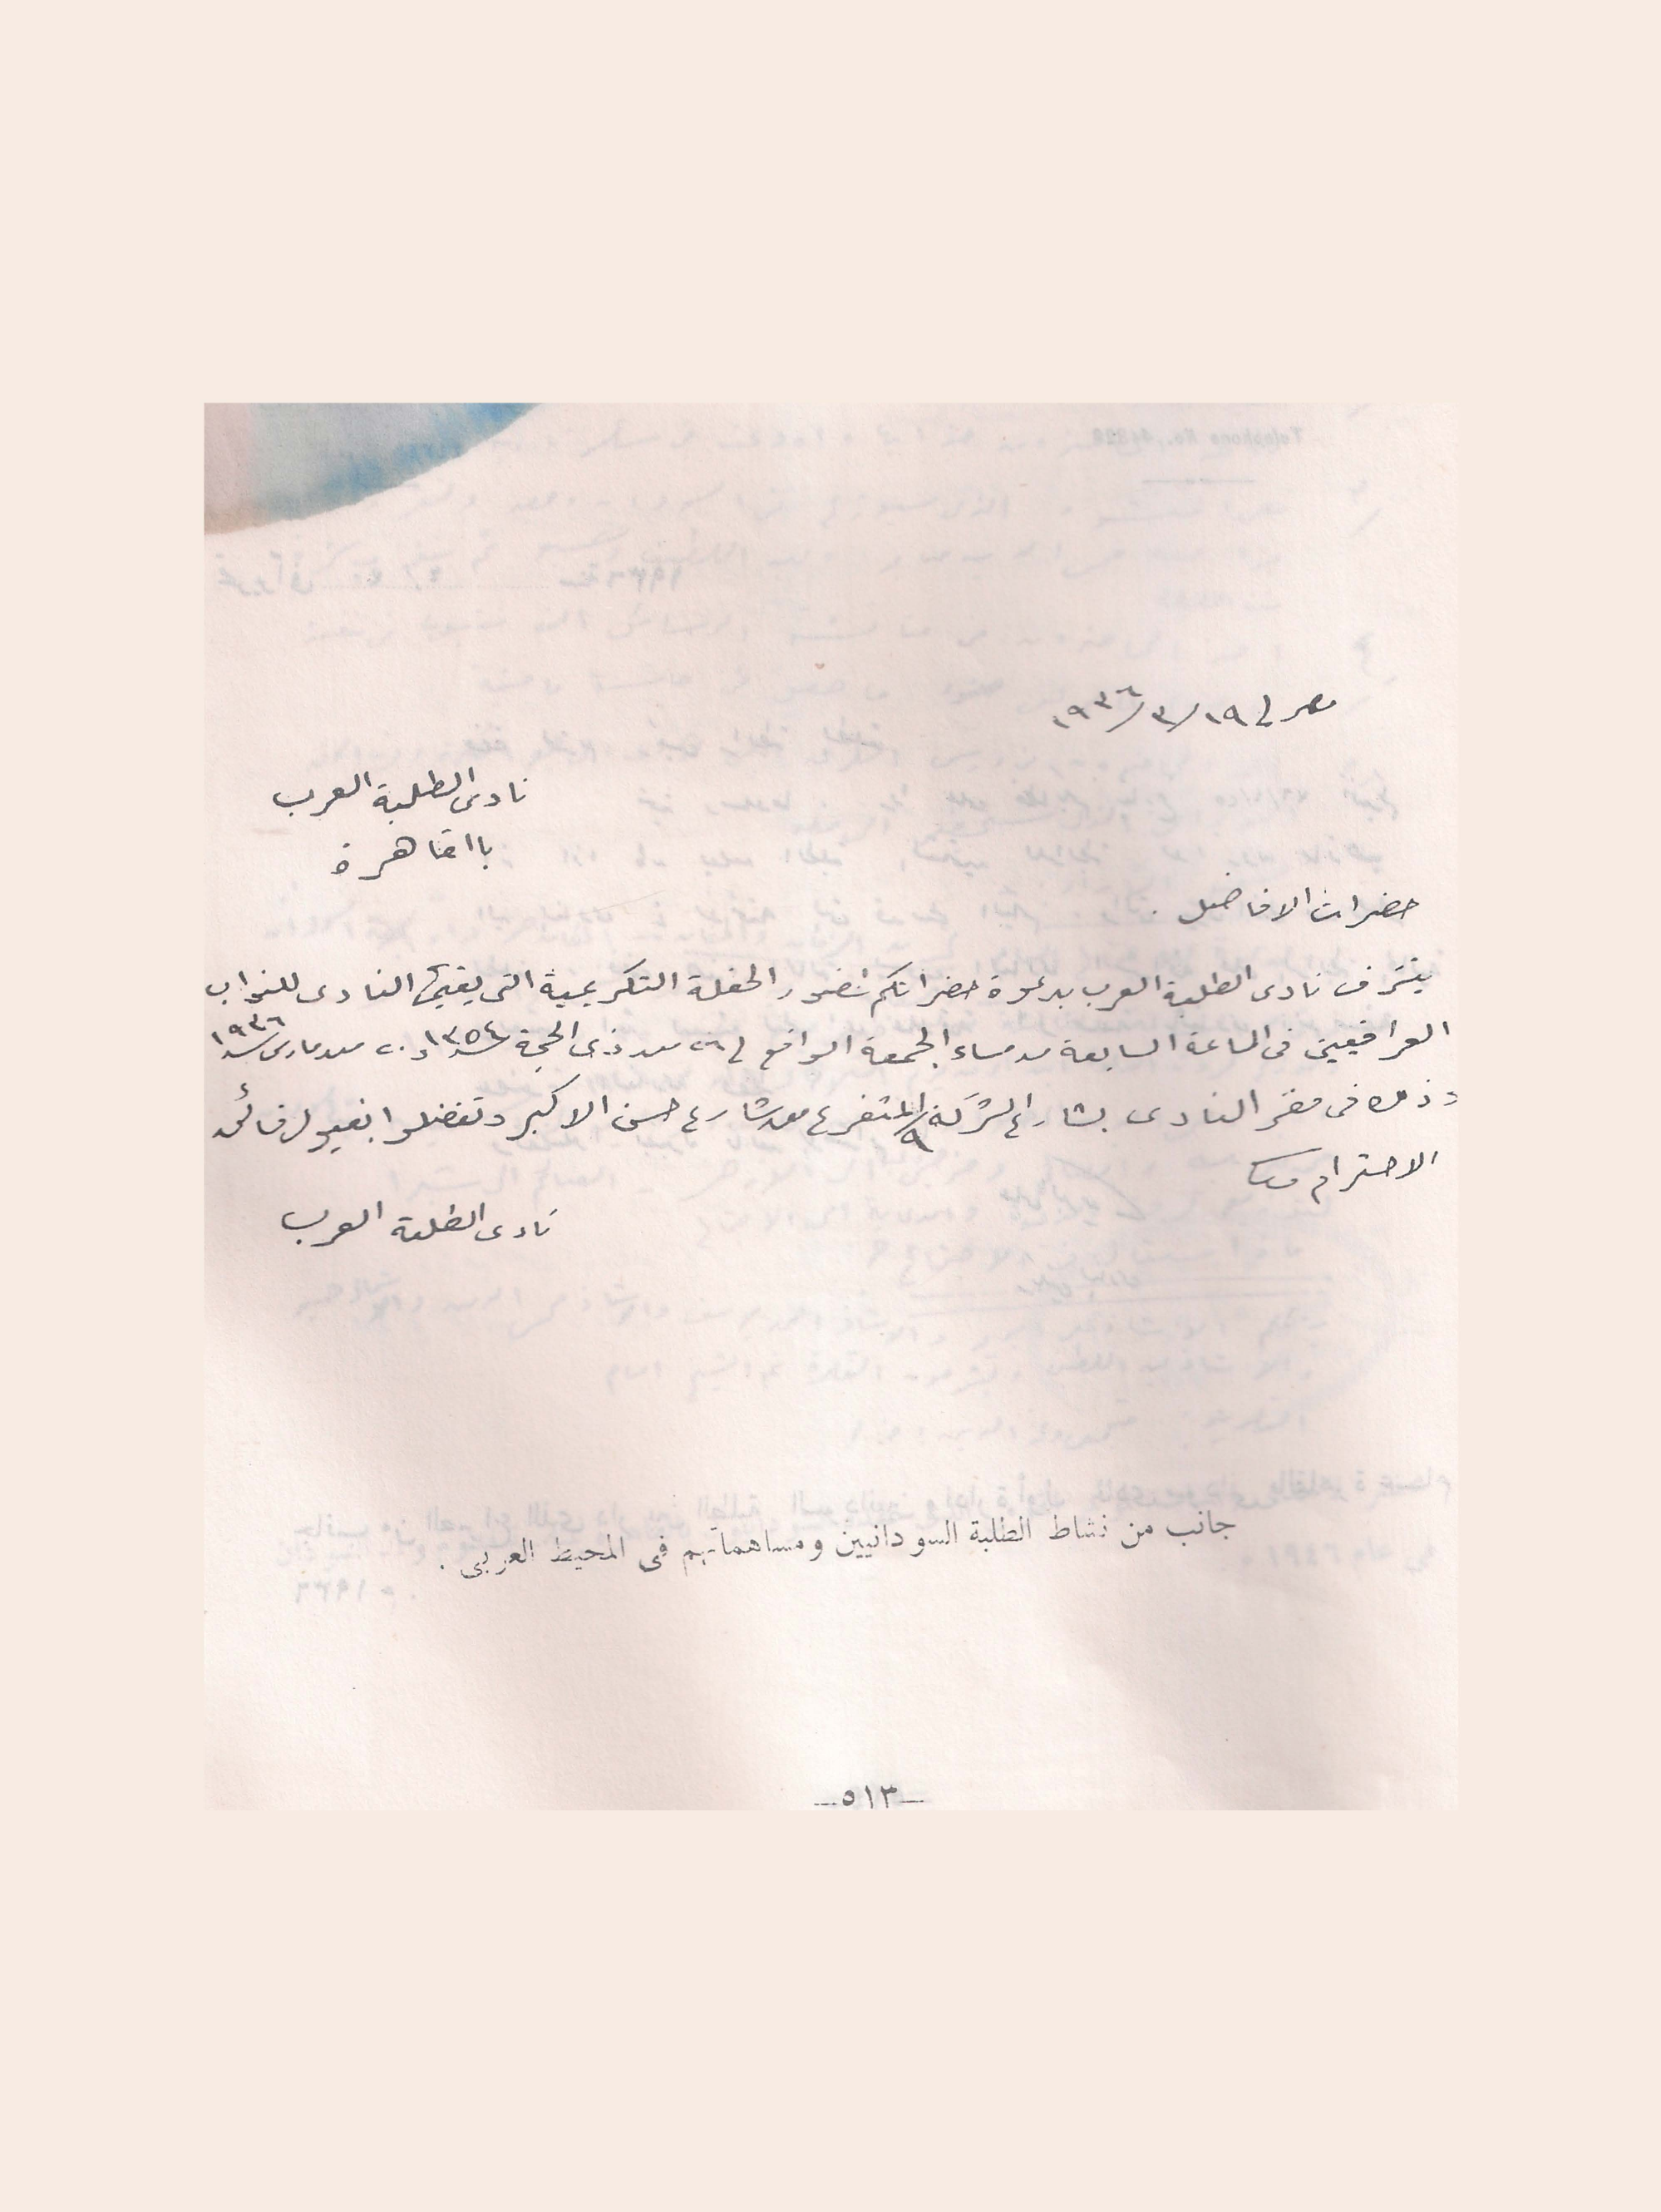 مصر في ١٩/٣/١٩٣٦
نادى الطلبة العرب
بالقاهرة
حضرات الافاضل .
يتشرف نادى الطلبة العرب بدعوة حضراتكم لحضور الحفلة التكريمية التى يقيمها النادى للنواب
العراقيين فى الساعة السابعة من مساء الجمعة الواقع في ٢٦ من ذى الحجة سنة ١٣٥٤ و ٢٠ من مارس سنة ١٩٣٦
وذلك فى مقر النادى بشارع الشركة /٩ المتفرع من شارع حسن الاكبر وتفضلوا بقبول فائق
الاحترام
نادى الطلبة العرب
جانب من نشاط الطلبة السودانيين ومساهماتهم فى المحيط العربى .
—٥١٣—